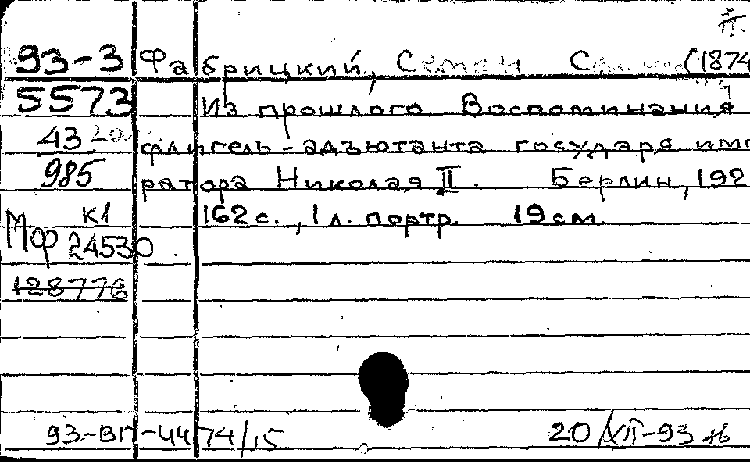 93-3 Фабрицкий, Семен (1874
5573 Из прошлого Воспоминания
43 флигель-адъютанта государя импе
985 ратора Николая II. Берлин, 192
К1 162 с., 1 л. портр. 19 см.
Мф 24530
128776
93-ВП-4474/15 20/XII-93